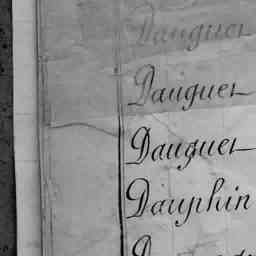 Dauguet
Dauguet
Dauguet
Dauphin